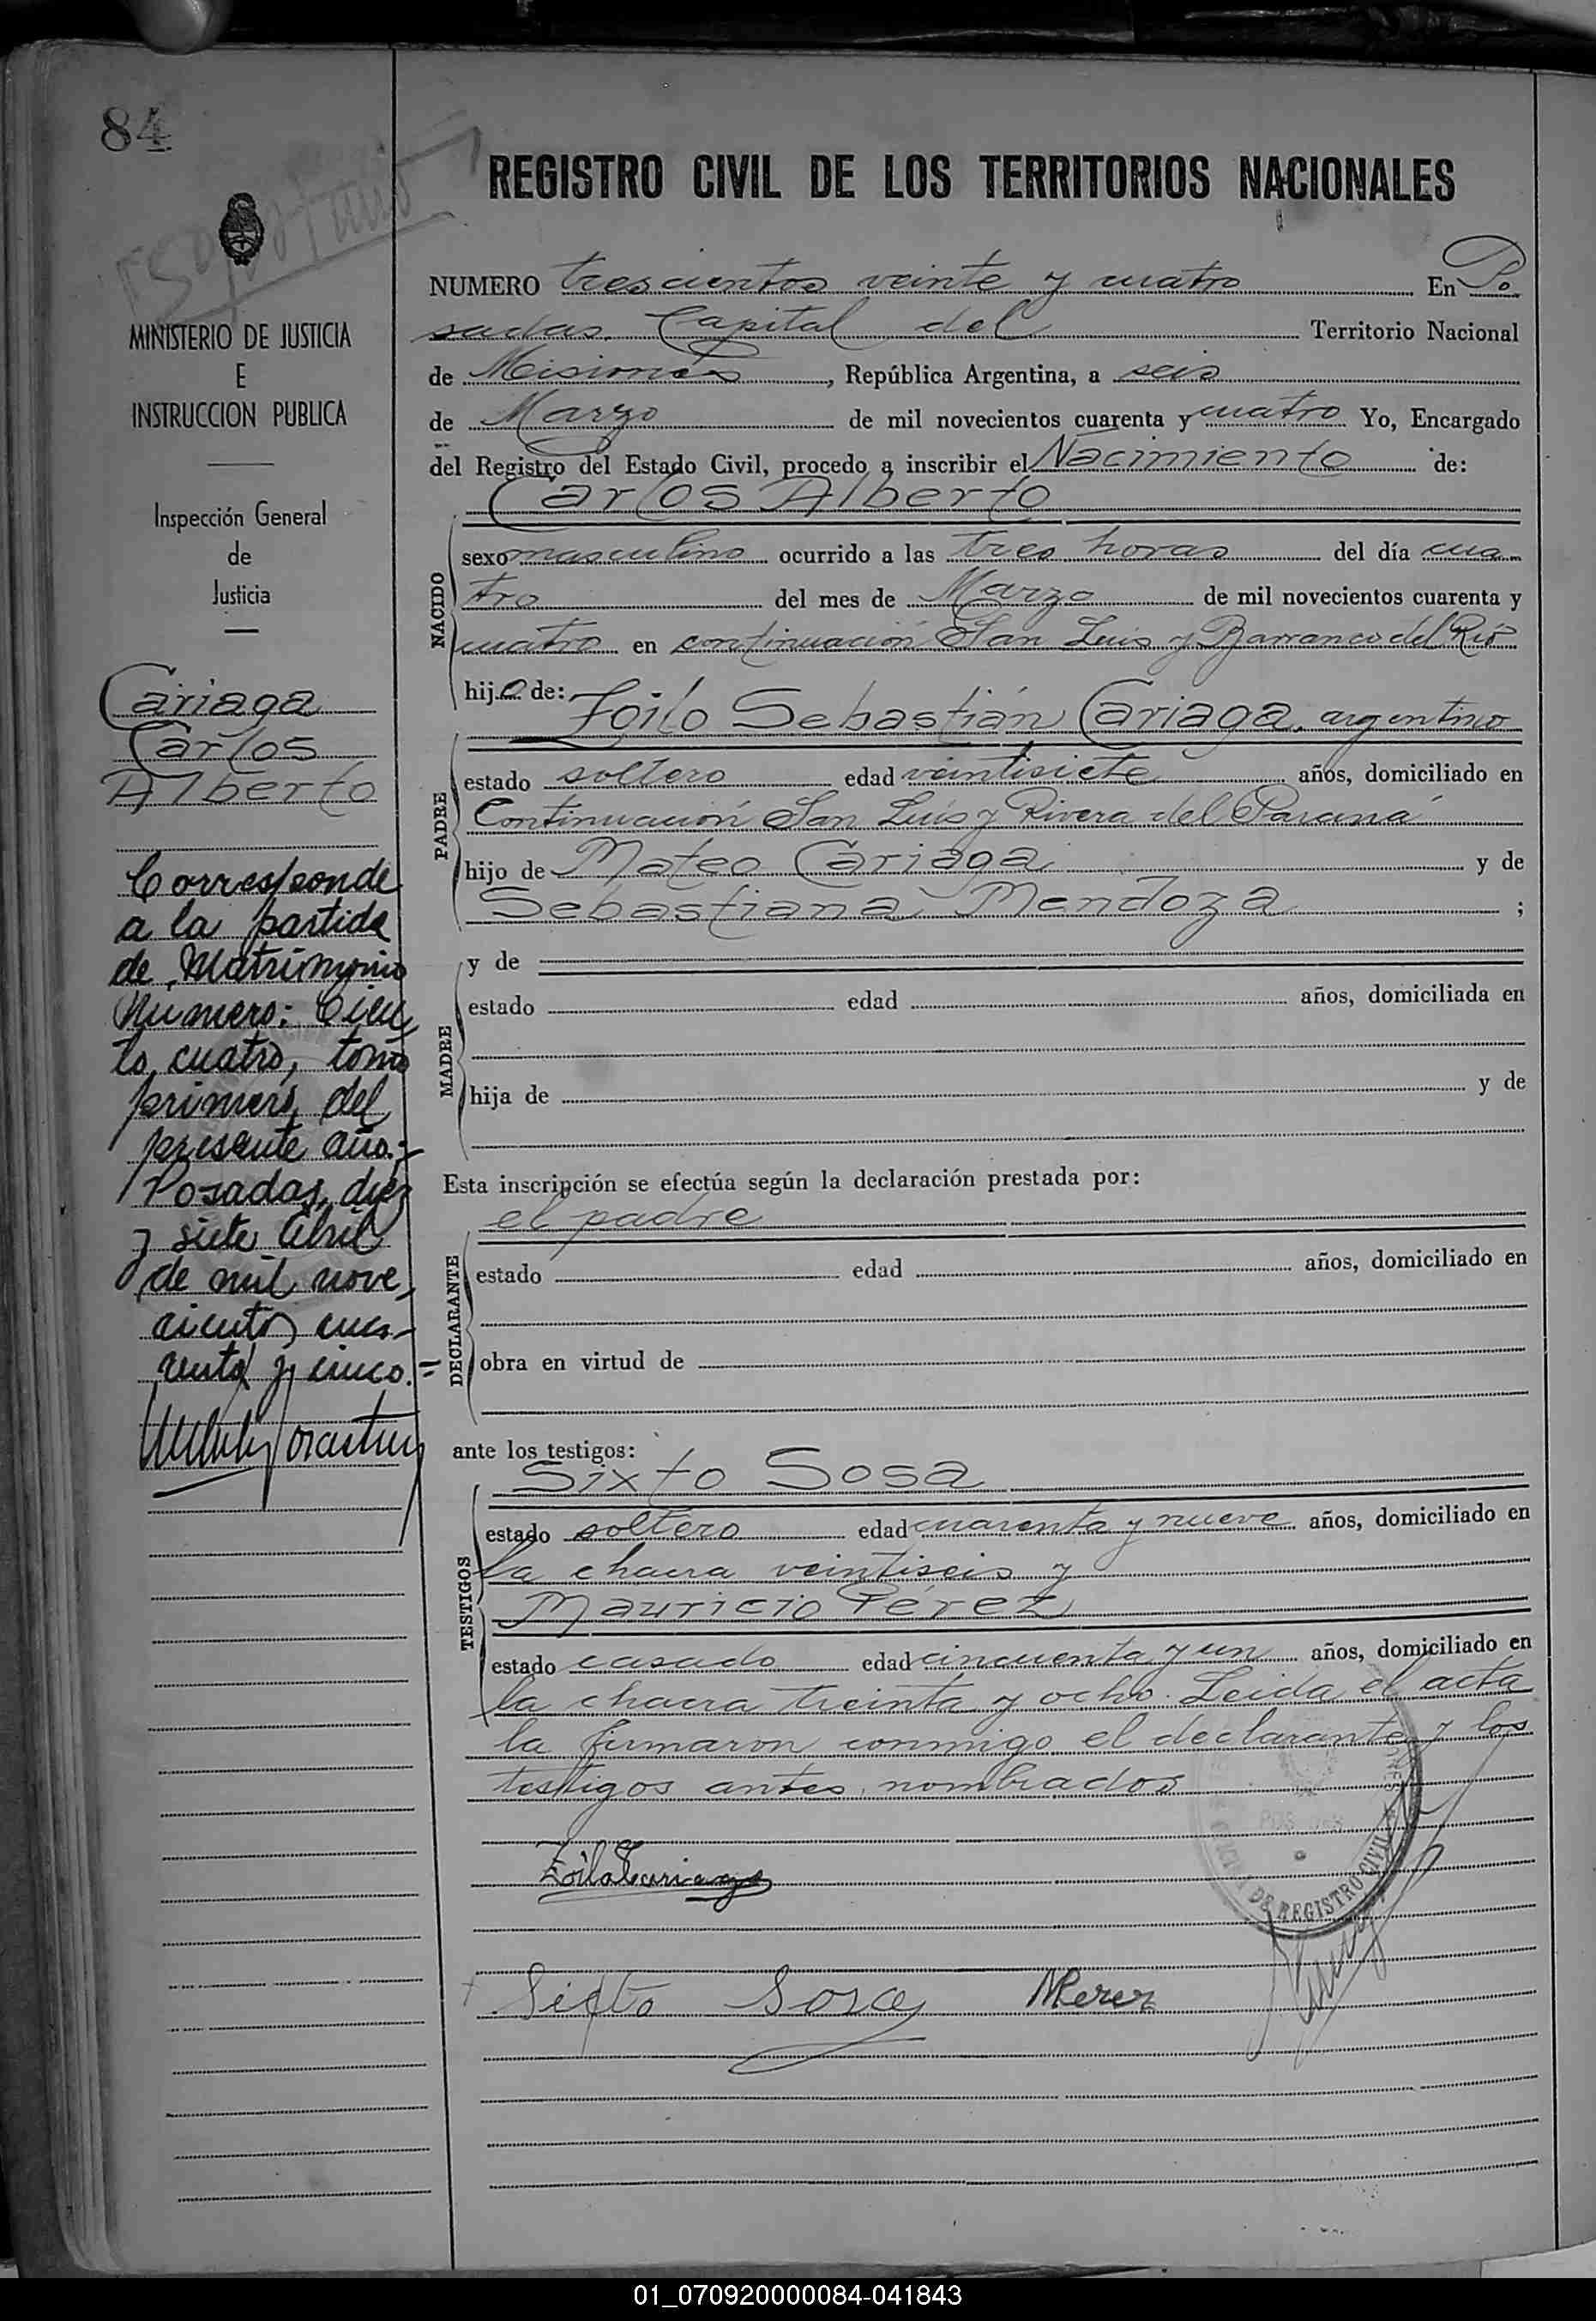 84
REGISTRO CIVIL DE LOS TERRITORIOS NACIONALES
MINISTERIO DE JUSTICIA
E
INSTRUCCION PUBLICA
Inspección General
de
Justicia
Cariaga
Carlos
Alberto
Corresponde
a la partida
de Matrimonio
Numero: Cien
to cuatro, tomo
primero, del
presente año.-
Posadas, diez
y siete Abril
de mil nove,
cientos cua-
renta y cinco.=
NUMERO trescientos veinte y cuatro En Po
sadas, Capital del Territorio Nacional
de Misiones, República Argentina, a seis
de Marzo de mil novecientos cuarenta y cuatro Yo, Encargado
del Registro del Estado Civil, procedo a inscribir el Nacimiento de:
Carlos Alberto
NACIDO
sexo masculino ocurrido a las tres horas del día cua
tro del mes de Marzo de mil novecientos cuarenta y
cuatro en continuación San Luis y Barranca del Río
hijo de:
Zoilo Sebastián Cariaga, argentino
PADRE
estado soltero edad veintisiete años, domiciliado en
Continuación San Luis y Rivera del Paraná
hijo de Mateo Cariaga y de
Sebastiana Mendoza ;
y de
MADRE
estado edad años, domiciliada en
hija de y de
Esta inscripción se efectúa según la declaración prestada por:
el padre
DECLARANTE
estado edad años, domiciliado en
obra en virtud de
ante los testigos:
Sixto Sosa
TESTIGOS
estado soltero edad cuarenta y nueve años, domiciliado en
la chacra veintiseis y
Mauricio Pérez
estado casado edad cincuenta y un años, domiciliado en
la chacra treinta y ocho. Leida el acta
la firmaron conmigo el declarante y los
testigos antes nombrados
DE REGISTRO CIVIL
Zoilo Cariaga
Sixto Sosa MPerez
01_070920000084-041843